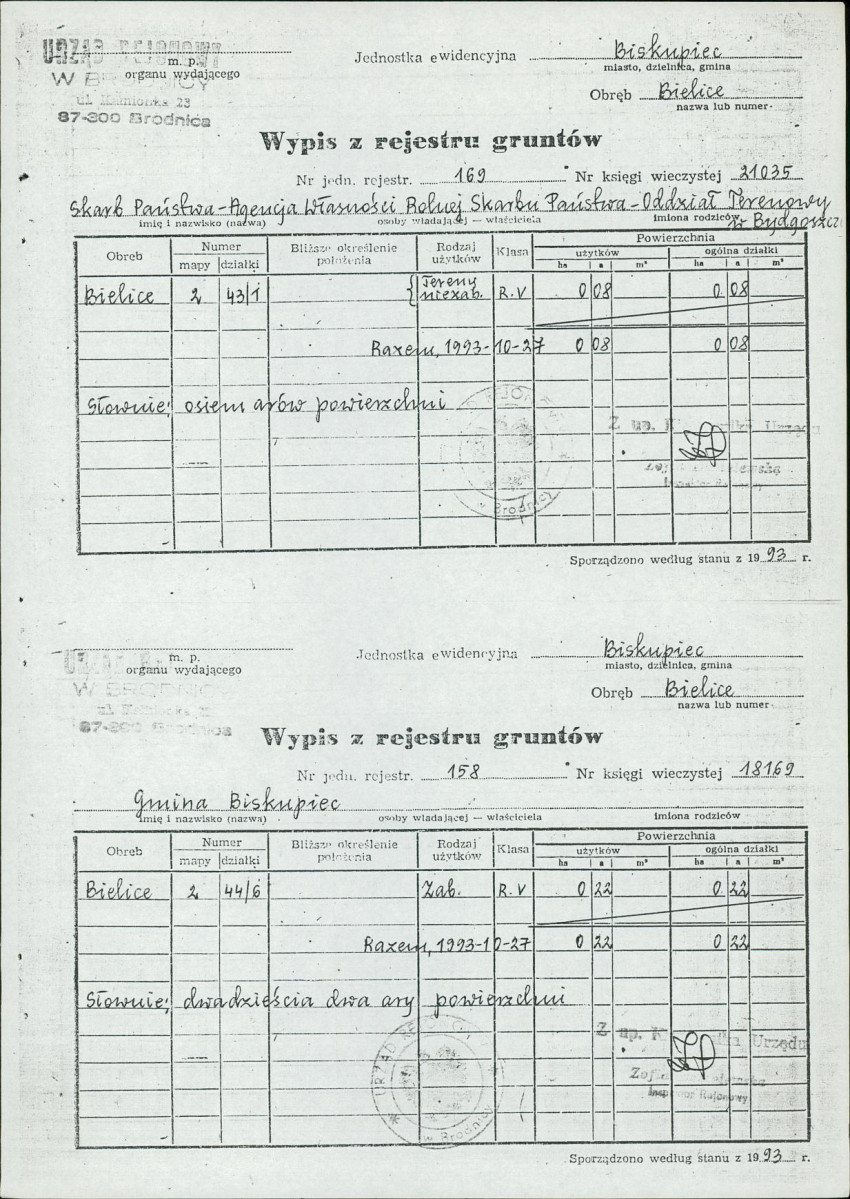 URZĄD REJONOWY
W BRODNICY
ul. Kamionka 23
87-300 Brodnica
m. p.
organu wydającego
Jednostka ewidencyjna Biskupiec
miasto, dzielnica, gmina
Obręb Bielice
nazwa lub numer
Wypis z rejestru gruntów
Nr jedn. rejestr. 169 Nr księgi wieczystej 21035
Skarb Państwa-Agencja Własności Rolnej Skarbu Państwa-Oddział Terenowy
w Bydgoszczy
imię i nazwisko (nazwa) osoby władającej — właściciela imiona rodziców
Obręb Numer Bliższe określenie położenia Rodzaj użytków Klasa Powierzchnia
mapy działki użytków ogólna działki
ha a m² ha a m²
Bielice 2 43/1 Tereny niezab. R.V 0 08 0 08
Razem, 1993-10-27 0 08 0 08
Słownie; osiem arów powierzchni
w Brodnicy
Z up. Urzędu
Sporządzono według stanu z 1993 r.
URZĄD
W BRODNICY
87-300 Brodnica
m. p.
organu wydającego
Jednostka ewidencyjna Biskupiec
miasto, dzielnica, gmina
Obręb Bielice
nazwa lub numer
Wypis z rejestru gruntów
Nr jedn. rejestr. 158 Nr księgi wieczystej 18169
Gmina Biskupiec
imię i nazwisko (nazwa) osoby władającej — właściciela imiona rodziców
Obręb Numer Bliższe określenie położenia Rodzaj użytków Klasa Powierzchnia
mapy działki użytków ogólna działki
ha a m² ha a m²
Bielice 2 44/6 Zab. R.V 0 22 0 22
Razem, 1993-10-27 0 22 0 22
Słownie; dwadzieścia dwa ary powierzchni
URZĄD REJONOWY
w Brodnicy
Z up. Urzędu
Inspektor Rejonowy
Sporządzono według stanu z 1993 r.